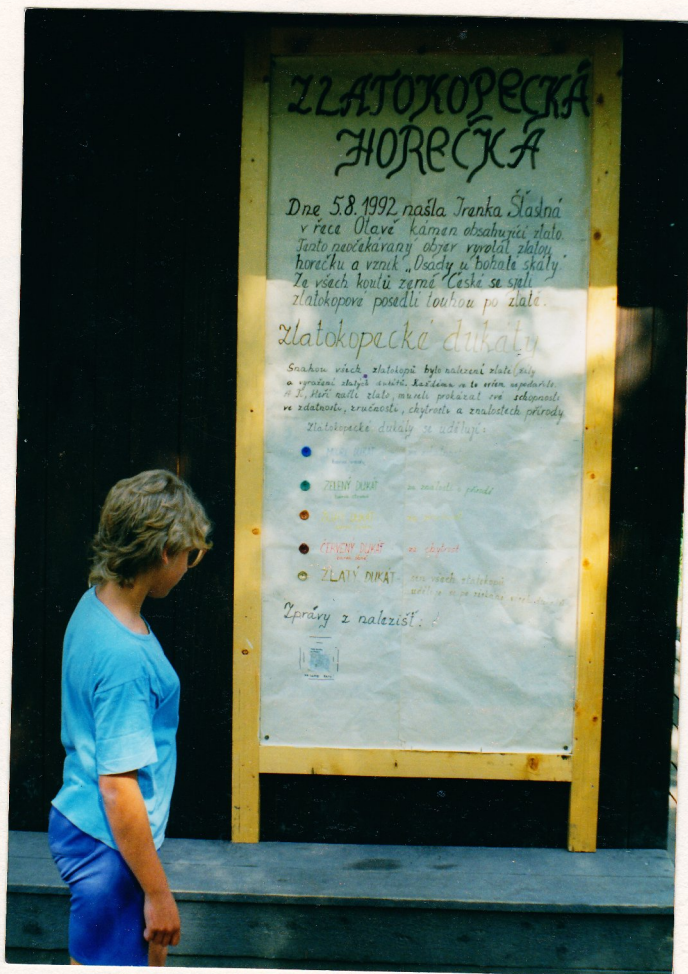 ZLATOKOPECKÁ
HOREČKA
Dne 5.8.1992 našla Irenka Šťastná
v řece Otavě kámen obsahující zlato.
Tento neočekávaný objev vyvolal zlatou
horečku a vznik „Osady u bohaté skály".
Ze všech koutů země České se sjeli
zlatokopové posedlí touhou po zlatě.
Zlatokopecké dukáty
Snahou všech zlatokopů bylo nalezení zlaté žíly
a vyražení zlatých dukátů. Každému se to ovšem nepodařilo.
A ti, kteří našli zlato, museli prokázat své schopnosti
ve zdatnosti, zručnosti, chytrosti a znalostech přírody.
Zlatokopecké dukáty se udělují:
MODRÝ DUKÁT
ZELENÝ DUKÁT za znalosti přírody
DUKÁT
ČERVENÝ DUKÁT za chytrost
ZLATÝ DUKÁT
Zprávy z nalezišť: